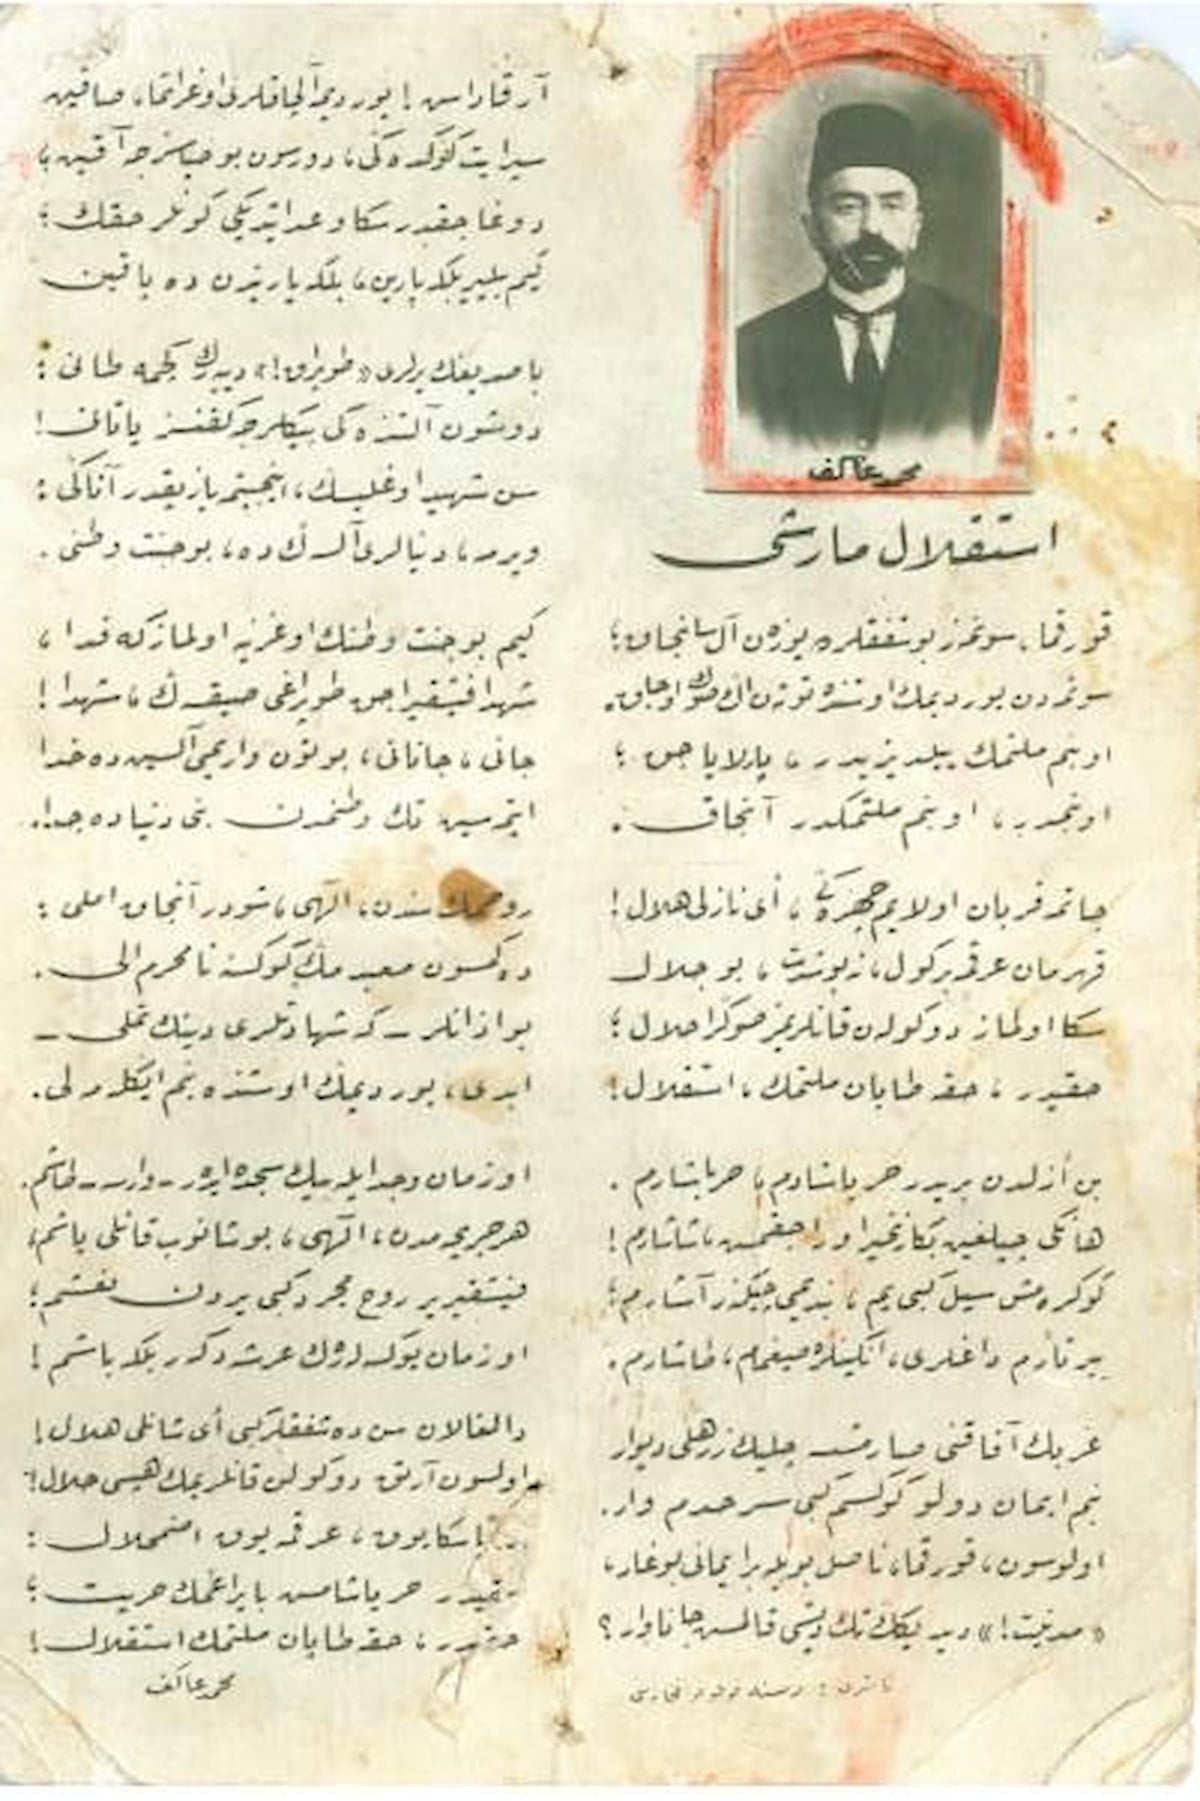 محمد عاكف
استقلال مارشی
قورقما، سونمز بو شفقلرده یوزن آل سانجاق؛
سونمه‌دن یوردیمك اوستنده توتن اڭ صوڭ اوجاق.
او بنم ملتمك ییلدیزیدر، پارلایاجق؛
او بنمدر، او بنم ملتمكدر آنجاق.
چاتمه قربان اولایم چهره‌ڭی، أی نازلی هلال!
قهرمان عرقمه بر كول، نه بو شدت، بو جلال
سكا اولماز دوكولن قانلریمز صوكرا حلال؛
حقیدر، حقه طاپان ملتمك، استقلال!
بن أزلدن بریدر حر یاشادم، حر یاشارم.
هانكی چیلغین بكا زنجیر اوراجقمش، شاشارم!
كوكره‌مش سیل كبی‌یم، بندیمی چیكنر آشارم؛
ییرتارم داغلری، انكینلره صیغمام، طاشارم.
غربك آفاقنی صارمشسه چلیك زرهلی دیوار
بنم ایمان دولو كوكسم كبی سرحدم وار.
اولوسون، قورقما، ناصل بویله بر ایمانی بوغار،
«مدنیت!» دیدیكك تك دیشی قالمش جاناوار؟
آرقاداش! یوردیمه آلچاقلری اوغراتما، صاقین
سپر ایت كوكده‌ڭی، دورسون بو حیاسزجه آقین؛
دوغاجقدر سكا وعد ایتدیكی كونلر حقك؛
كیم بیلیر بلكه یارین، بلكه یاریندن ده یاقین
باصدیغك یرلری «طوپراق!» دییه‌رك كچمه طانی:
دوشون آلتنده‌كی بیكلرجه كفنسز یاتانی!
سن شهید اوغلیسك، اینجیتمه یازیقدر آتاڭی:
ویرمه، دنیالری آلسه‌ڭ ده، بو جنت وطنی.
كیم بو جنت وطنك اوغرینه اولماز كه فدا،
شهدا فیشقیراجق طوپراغی صیقسه‌ڭ، شهدا!
جانی، جانانی، بوتون واریمی آلسین ده خدا
ایتمه‌سین تك وطنمدن بنی دنیاده جدا.
روحمك سندن، الهی، شودر آنجاق املی:
دكمسون معبدمك كوكسنه نامحرم الی.
بو اذانلر ـ كه شهادتلری دینك تملی ـ
ابدی، یوردیمك اوستنده بنم ایكله‌ملی.
او زمان وجد ایله بیك سجده ایدر ـ وارسه ـ طاشم.
هر جریحه‌مدن، الهی، بوشانوب قانلی یاشم،
فیشقیریر روح مجرد كبی یردن نعشم؛
او زمان یوكسله‌رك عرشه دكر بلكه باشم!
دالغالان سن ده شفقلر كبی أی شانلی هلال!
اولسون آرتق دوكولن قانلریمك هپسی حلال!
سكا یوق، عرقمه یوق اضمحلال:
حقیدر حر یاشامش بایراغمك حریت؛
حقیدر، حقه طاپان ملتمك استقلال!
محمد عاكف